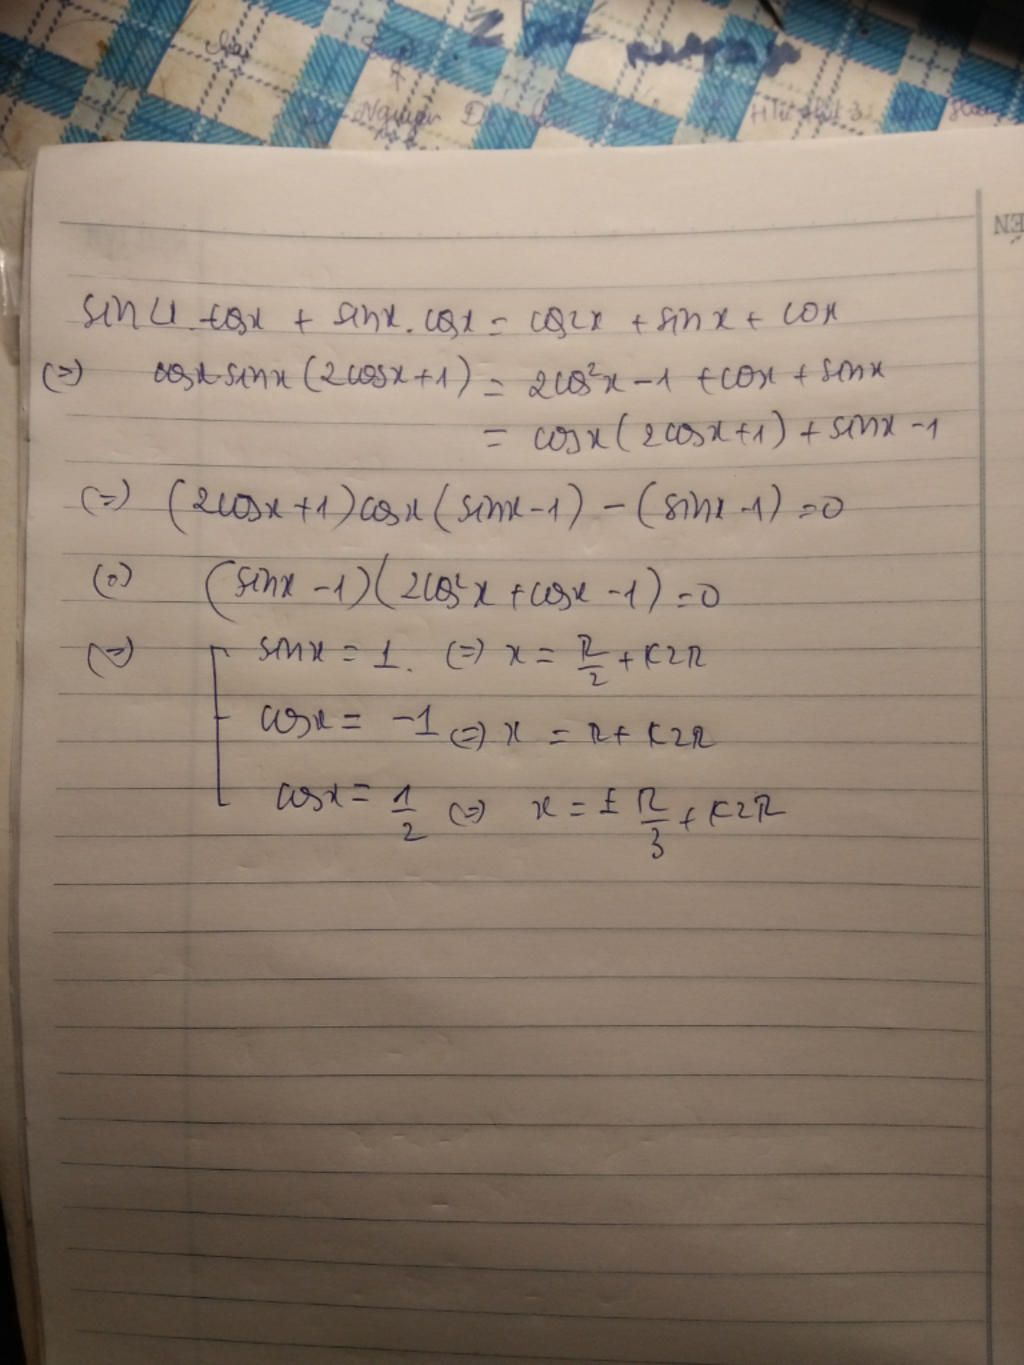 Nguyen
ÉN
sin 2x cosx + sinx . cosx = cos2x + sinx + cosx
(=) cosx sinx (2cosx+1) = 2cos²x - 1 + cosx + sinx
= cosx (2cosx+1) + sinx - 1
(=) (2cosx+1) cosx (sinx - 1) - (sinx - 1) = 0
(=) (sinx - 1)(2cos²x + cosx - 1) = 0
(=) sinx = 1. (=) x = π/2 + k2π
cosx = -1 (=) x = π + k2π
cosx = 1/2 (=) x = ± π/3 + k2π